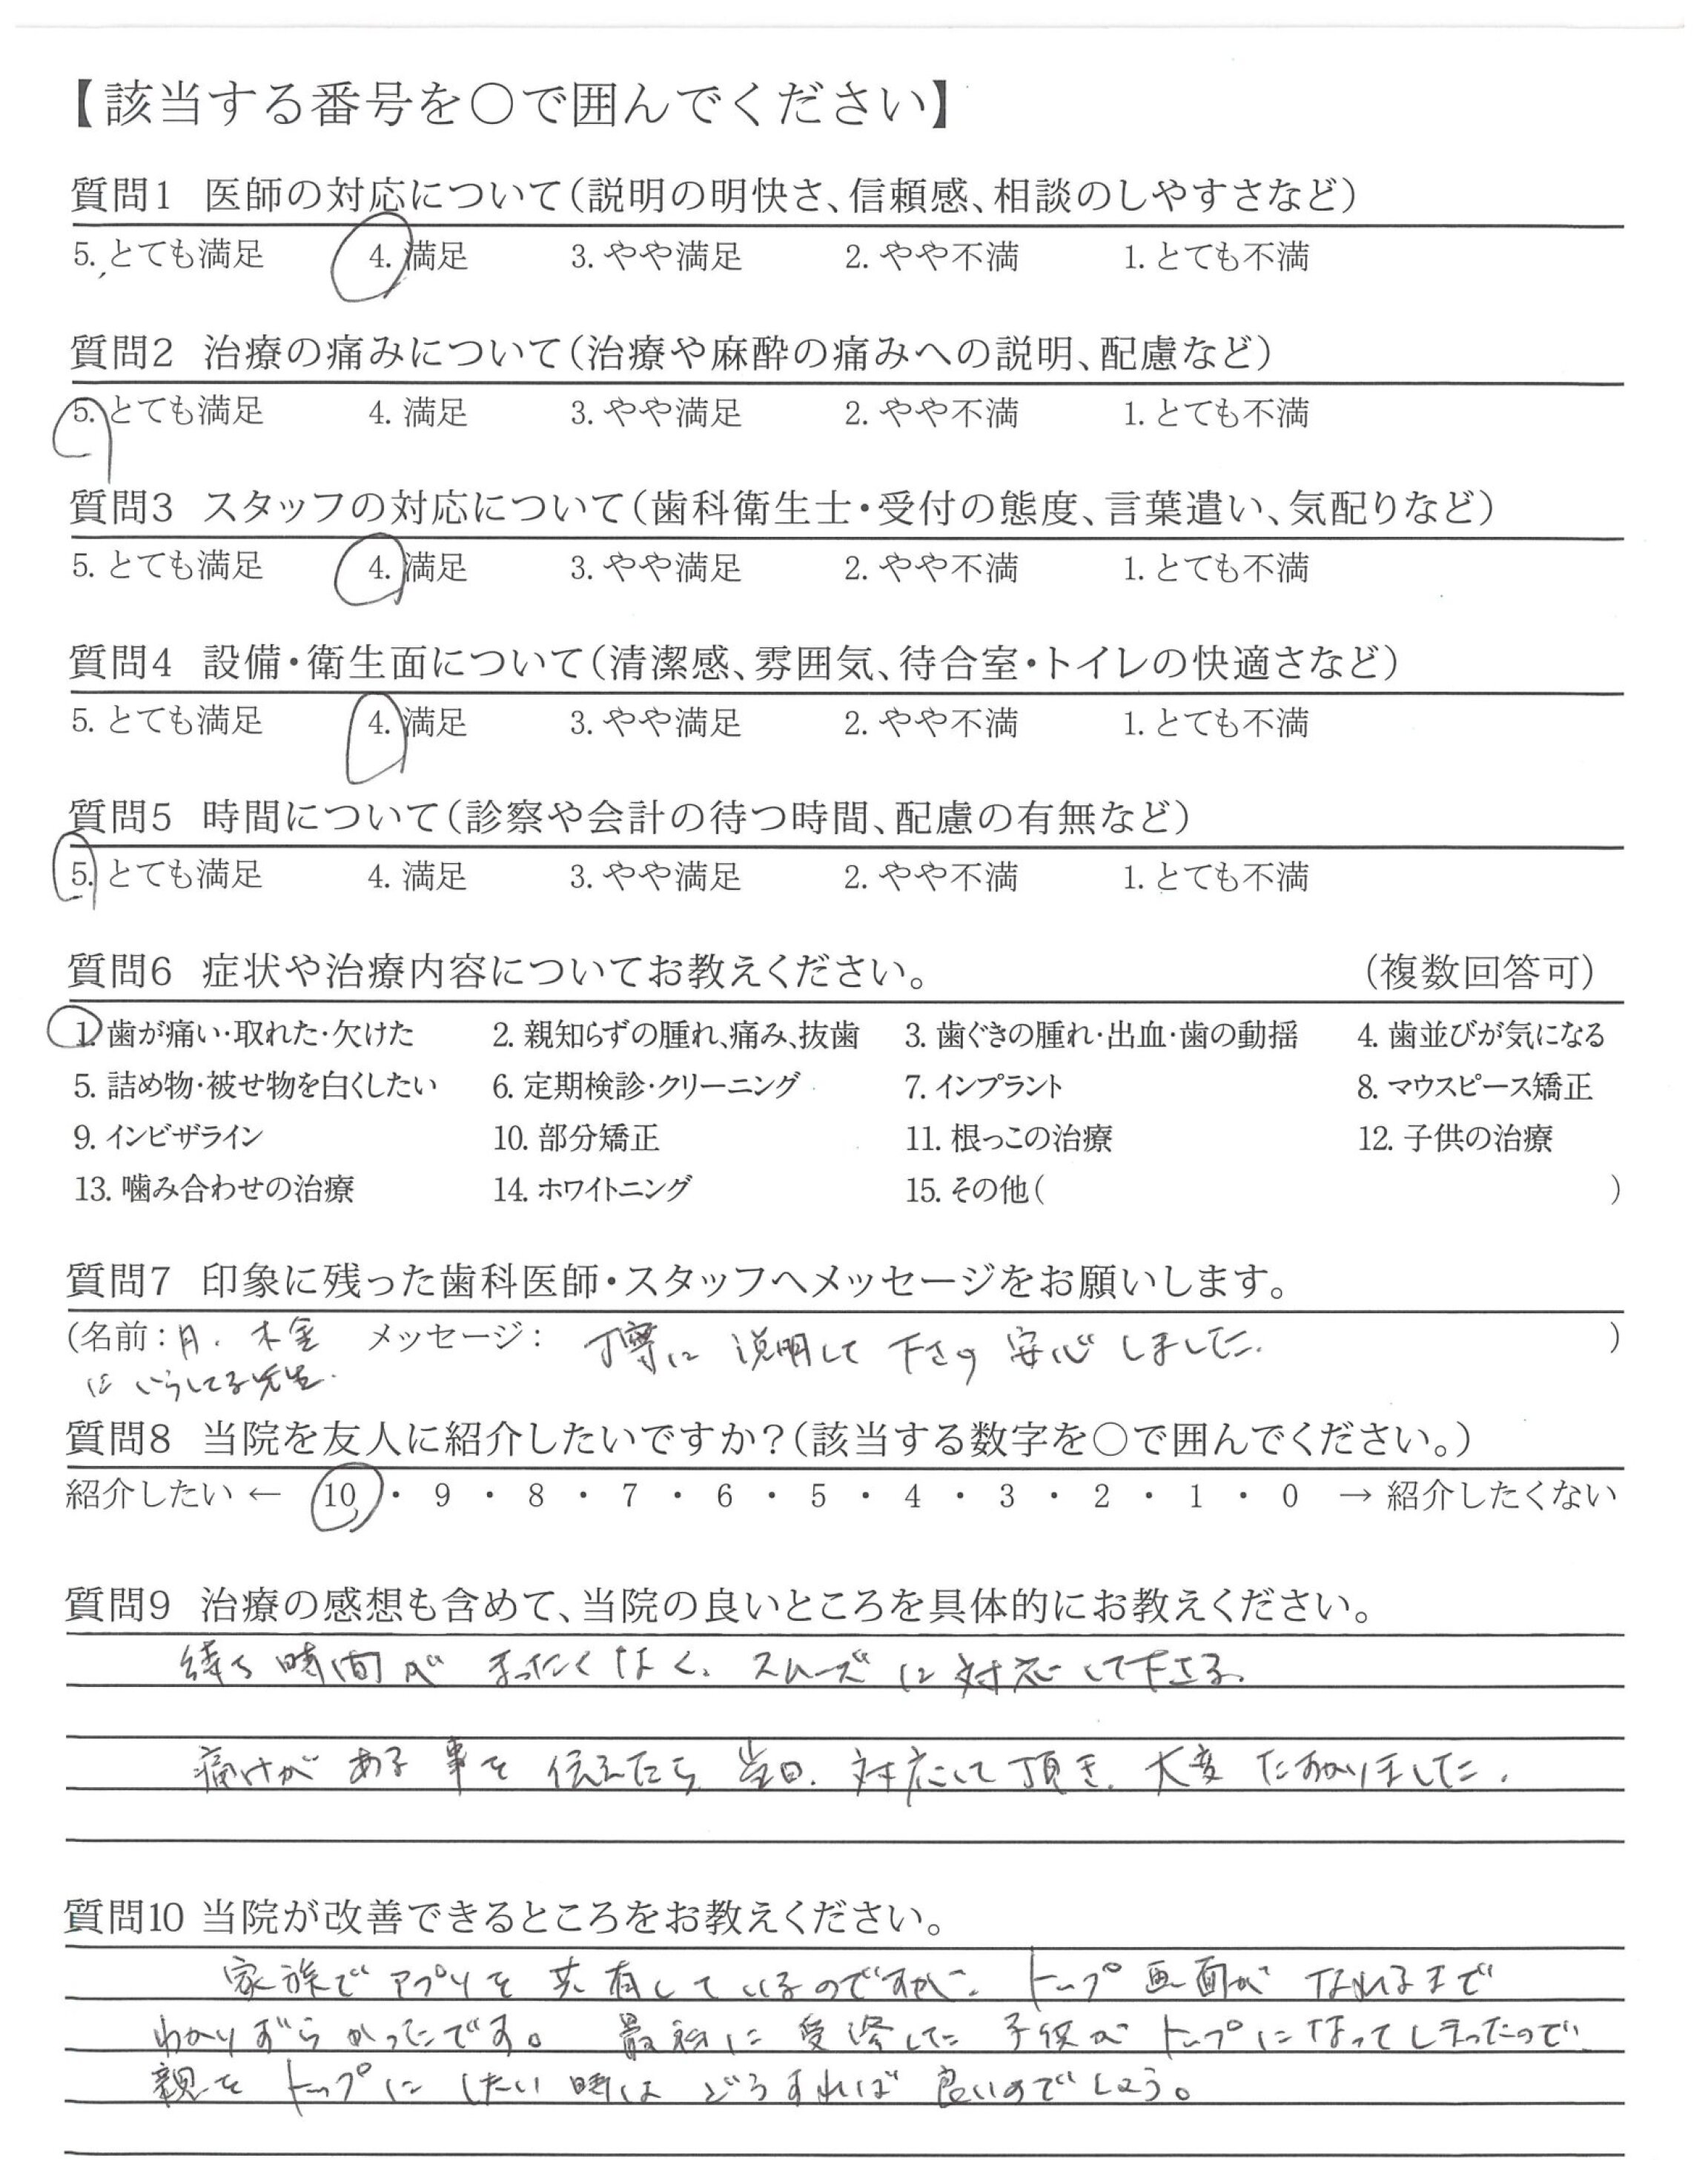 【該当する番号を○で囲んでください】
質問1 医師の対応について(説明の明快さ、信頼感、相談のしやすさなど)
5. とても満足 4. 満足 3. やや満足 2. やや不満 1. とても不満
質問2 治療の痛みについて(治療や麻酔の痛みへの説明、配慮など)
5. とても満足 4. 満足 3. やや満足 2. やや不満 1. とても不満
質問3 スタッフの対応について(歯科衛生士・受付の態度、言葉遣い、気配りなど)
5. とても満足 4. 満足 3. やや満足 2. やや不満 1. とても不満
質問4 設備・衛生面について(清潔感、雰囲気、待合室・トイレの快適さなど)
5. とても満足 4. 満足 3. やや満足 2. やや不満 1. とても不満
質問5 時間について(診察や会計の待つ時間、配慮の有無など)
5. とても満足 4. 満足 3. やや満足 2. やや不満 1. とても不満
質問6 症状や治療内容についてお教えください。 (複数回答可)
1. 歯が痛い・取れた・欠けた 2. 親知らずの腫れ、痛み、抜歯 3. 歯ぐきの腫れ・出血・歯の動揺 4. 歯並びが気になる
5. 詰め物・被せ物を白くしたい 6. 定期検診・クリーニング 7. インプラント 8. マウスピース矯正
9. インビザライン 10. 部分矯正 11. 根っこの治療 12. 子供の治療
13. 噛み合わせの治療 14. ホワイトニング 15. その他( )
質問7 印象に残った歯科医師・スタッフへメッセージをお願いします。
(名前：月. 木金 メッセージ： 丁寧に 説明して 下さり 安心 しました. )
に いらしてる先生.
質問8 当院を友人に紹介したいですか?(該当する数字を○で囲んでください。)
紹介したい ← 10 ・ 9 ・ 8 ・ 7 ・ 6 ・ 5 ・ 4 ・ 3 ・ 2 ・ 1 ・ 0 → 紹介したくない
質問9 治療の感想も含めて、当院の良いところを具体的にお教えください。
待ち 時間が まったくなく、スムーズに 対応して下さる.
痛けが ある 事を 伝えたら 当日. 対応して 頂き. 大変 たすかりました.
質問10 当院が改善できるところをお教えください。
家族で アプリを 共有して いるのですが、トップ 画面が なれるまで
わかりずらかったです。 最初に 受診した 子供が トップになってしまったので
親を トップに したい 時は どうすれば 良いのでしょう。